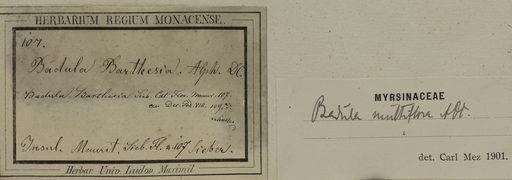 HERBARIUM REGIUM MONACENSE.
107.
Badula Barthesia. Alph. DC.
Badula Barthesia Sieb. Fl. Maur. 107.
Insul. Maurit. Sieb. Fl. n 107 Sieber.
Herbar. Univ. Ludov. Maximil.
MYRSINACEAE
Badula multiflora A.DC.
det. Carl Mez 1901.